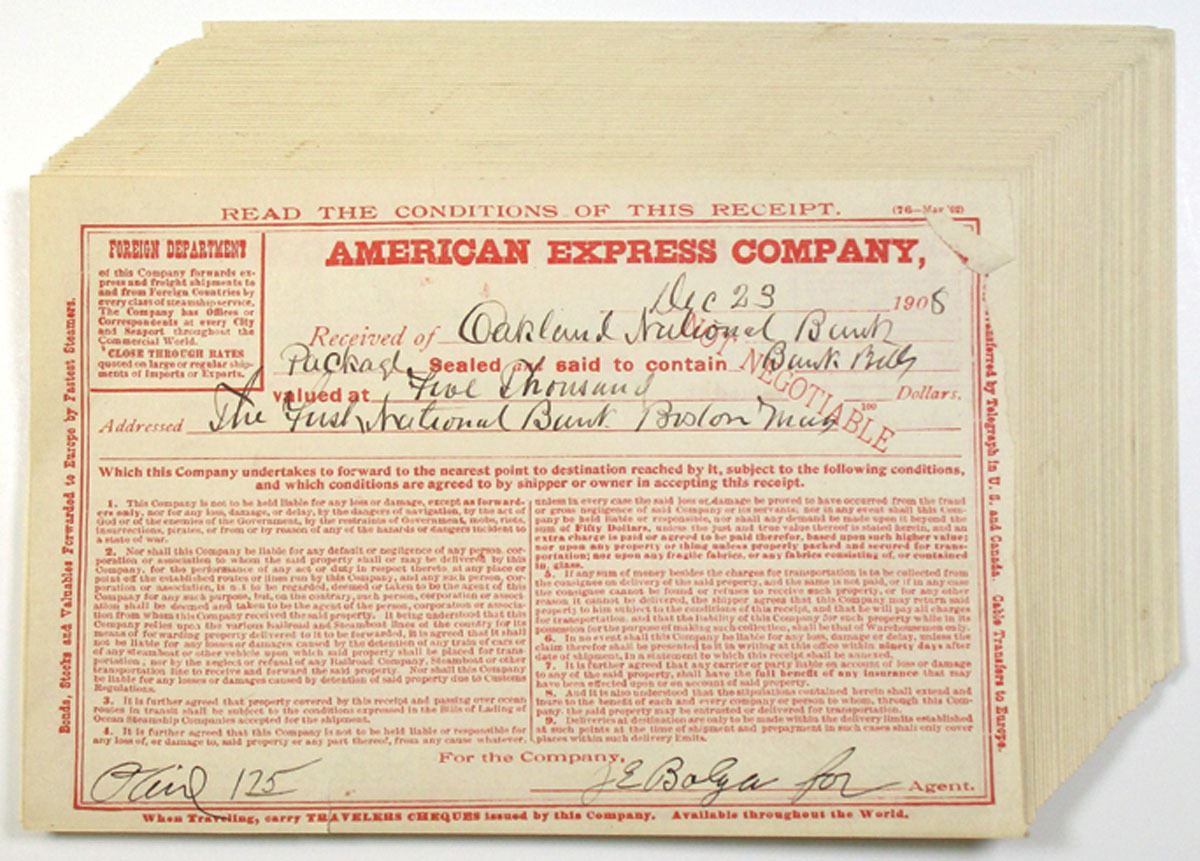 READ THE CONDITIONS OF THIS RECEIPT.
(76—Mar '02)
FOREIGN DEPARTMENT
of this Company forwards ex-
press and freight shipments to
and from Foreign Countries by
every class of steamship service.
The Company has Offices or
Correspondents at every City
and Seaport throughout the
Commercial World.
CLOSE THROUGH RATES
quoted on large or regular ship-
ments of Imports or Exports.
AMERICAN EXPRESS COMPANY,
Dec 23 1908
Received of Oakland National Bank
Package Sealed and said to contain Bank Bills
valued at Five Thousand Dollars.
100
NOT NEGOTIABLE
Addressed The First National Bank Boston Mass
Which this Company undertakes to forward to the nearest point to destination reached by it, subject to the following conditions,
and which conditions are agreed to by shipper or owner in accepting this receipt.
1. This Company is not to be held liable for any loss or damage, except as forward-
ers only, nor for any loss, damage, or delay, by the dangers of navigation, by the act of
God or of the enemies of the Government, by the restraints of Government, mobs, riots,
insurrections, pirates, or from or by reason of any of the hazards or dangers incident to
a state of war.
2. Nor shall this Company be liable for any default or negligence of any person, cor-
poration or association to whom the said property shall or may be delivered by this
Company, for the performance of any act or duty in respect thereto, at any place or
point off the established routes or lines run by this Company, and any such person, cor-
poration or association, is not to be regarded, deemed or taken to be the agent of this
Company for any such purpose, but, on the contrary, such person, corporation or associ-
ation shall be deemed and taken to be the agent of the person, corporation or associa-
tion from whom this Company received the said property. It being understood that this
Company relies upon the various Railroad and Steamboat lines of the country for its
means of forwarding property delivered to it to be forwarded, it is agreed that it shall
not be liable for any losses or damages caused by the detention of any train of cars or
of any steamboat or other vehicle upon which said property shall be placed for trans-
portation; nor by the neglect or refusal of any Railroad Company, Steamboat or other
transportation line to receive and forward the said property. Nor shall this Company
be liable for any losses or damages caused by detention of said property due to Customs
Regulations.
3. It is further agreed that property covered by this receipt and passing over ocean
routes in transit shall be subject to the conditions expressed in the Bills of Lading of
Ocean Steamship Companies accepted for the shipment.
4. It is further agreed that this Company is not to be held liable or responsible for
any loss of, or damage to, said property or any part thereof, from any cause whatever,
unless in every case the said loss or damage be proved to have occurred from the fraud
or gross negligence of said Company or its servants; nor in any event shall this Com-
pany be held liable or responsible, nor shall any demand be made upon it beyond the
sum of Fifty Dollars, unless the just and true value thereof is stated herein, and an
extra charge is paid or agreed to be paid therefor, based upon such higher value;
nor upon any property or thing unless properly packed and secured for trans-
portation; nor upon any fragile fabrics, or any fabrics consisting of, or contained
in, glass.
5. If any sum of money besides the charges for transportation is to be collected from
the consignee on delivery of the said property, and the same is not paid, or if in any case
the consignee cannot be found or refuses to receive such property, or for any other
reason it cannot be delivered, the shipper agrees that this Company may return said
property to him subject to the conditions of this receipt, and that he will pay all charges
for transportation, and that the liability of this Company for such property while in its
possession for the purpose of making such collection, shall be that of Warehousemen only.
6. In no event shall this Company be liable for any loss, damage or delay, unless the
claim therefor shall be presented to it in writing at this office within ninety days after
date of shipment, in a statement to which this receipt shall be annexed.
7. It is further agreed that any carrier or party liable on account of loss or damage
to any of the said property, shall have the full benefit of any insurance that may
have been effected upon or on account of said property.
8. And it is also understood that the stipulations contained herein shall extend and
inure to the benefit of each and every company or person to whom, through this Com-
pany, the said property may be entrusted or delivered for transportation.
9. Deliveries at destination are only to be made within the delivery limits established
at such points at the time of shipment and prepayment in such cases shall only cover
places within such delivery limits.
For the Company,
125
J E Bolger for Agent.
When Traveling, carry TRAVELERS CHEQUES issued by this Company. Available throughout the World.
Bonds, Stocks and Valuables Forwarded to Europe by Fastest Steamers.
Transferred by Telegraph in U. S. and Canada. Cable Transfers to Europe.